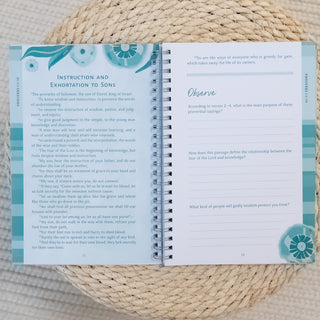 INSTRUCTION AND
EXHORTATION TO SONS
¹The proverbs of Solomon, the son of David, king of Israel:
²To know wisdom and instruction; to perceive the words
of understanding;
³to receive the instruction of wisdom, justice, and judg-
ment, and equity;
⁴to give good judgment to the simple, to the young man
knowledge and discretion.
⁵A wise man will hear and will increase learning, and a
man of understanding shall attain wise counsels,
⁶to understand a proverb and the interpretation, the words
of the wise and their riddles.
⁷The fear of the LORD is the beginning of knowledge, but
fools despise wisdom and instruction.
⁸My son, hear the instruction of your father, and do not
abandon the law of your mother,
⁹for they shall be an ornament of grace to your head and
chains about your neck.
¹⁰My son, if sinners entice you, do not consent.
¹¹If they say, "Come with us, let us lie in wait for blood, let
us lurk secretly for the innocent without cause;
¹²let us swallow them up alive like the grave and whole
like those who go down to the pit;
¹³we shall find all precious possessions; we shall fill our
houses with plunder;
¹⁴cast in your lot among us; let us all have one purse"—
¹⁵my son, do not walk in the way with them; refrain your
foot from their path,
¹⁶for their feet run to evil and hurry to shed blood.
¹⁷Surely the net is spread in vain in the sight of any bird.
¹⁸And they lie in wait for their own blood; they lurk secretly
for their own lives.
¹⁹So are the ways of everyone who is greedy for gain,
which takes away the life of its owners.
Observe
According to verses 2–4, what is the main purpose of these
proverbial sayings?
How does this passage define the relationship between the
fear of the Lord and knowledge?
What kind of people will godly wisdom protect you from?